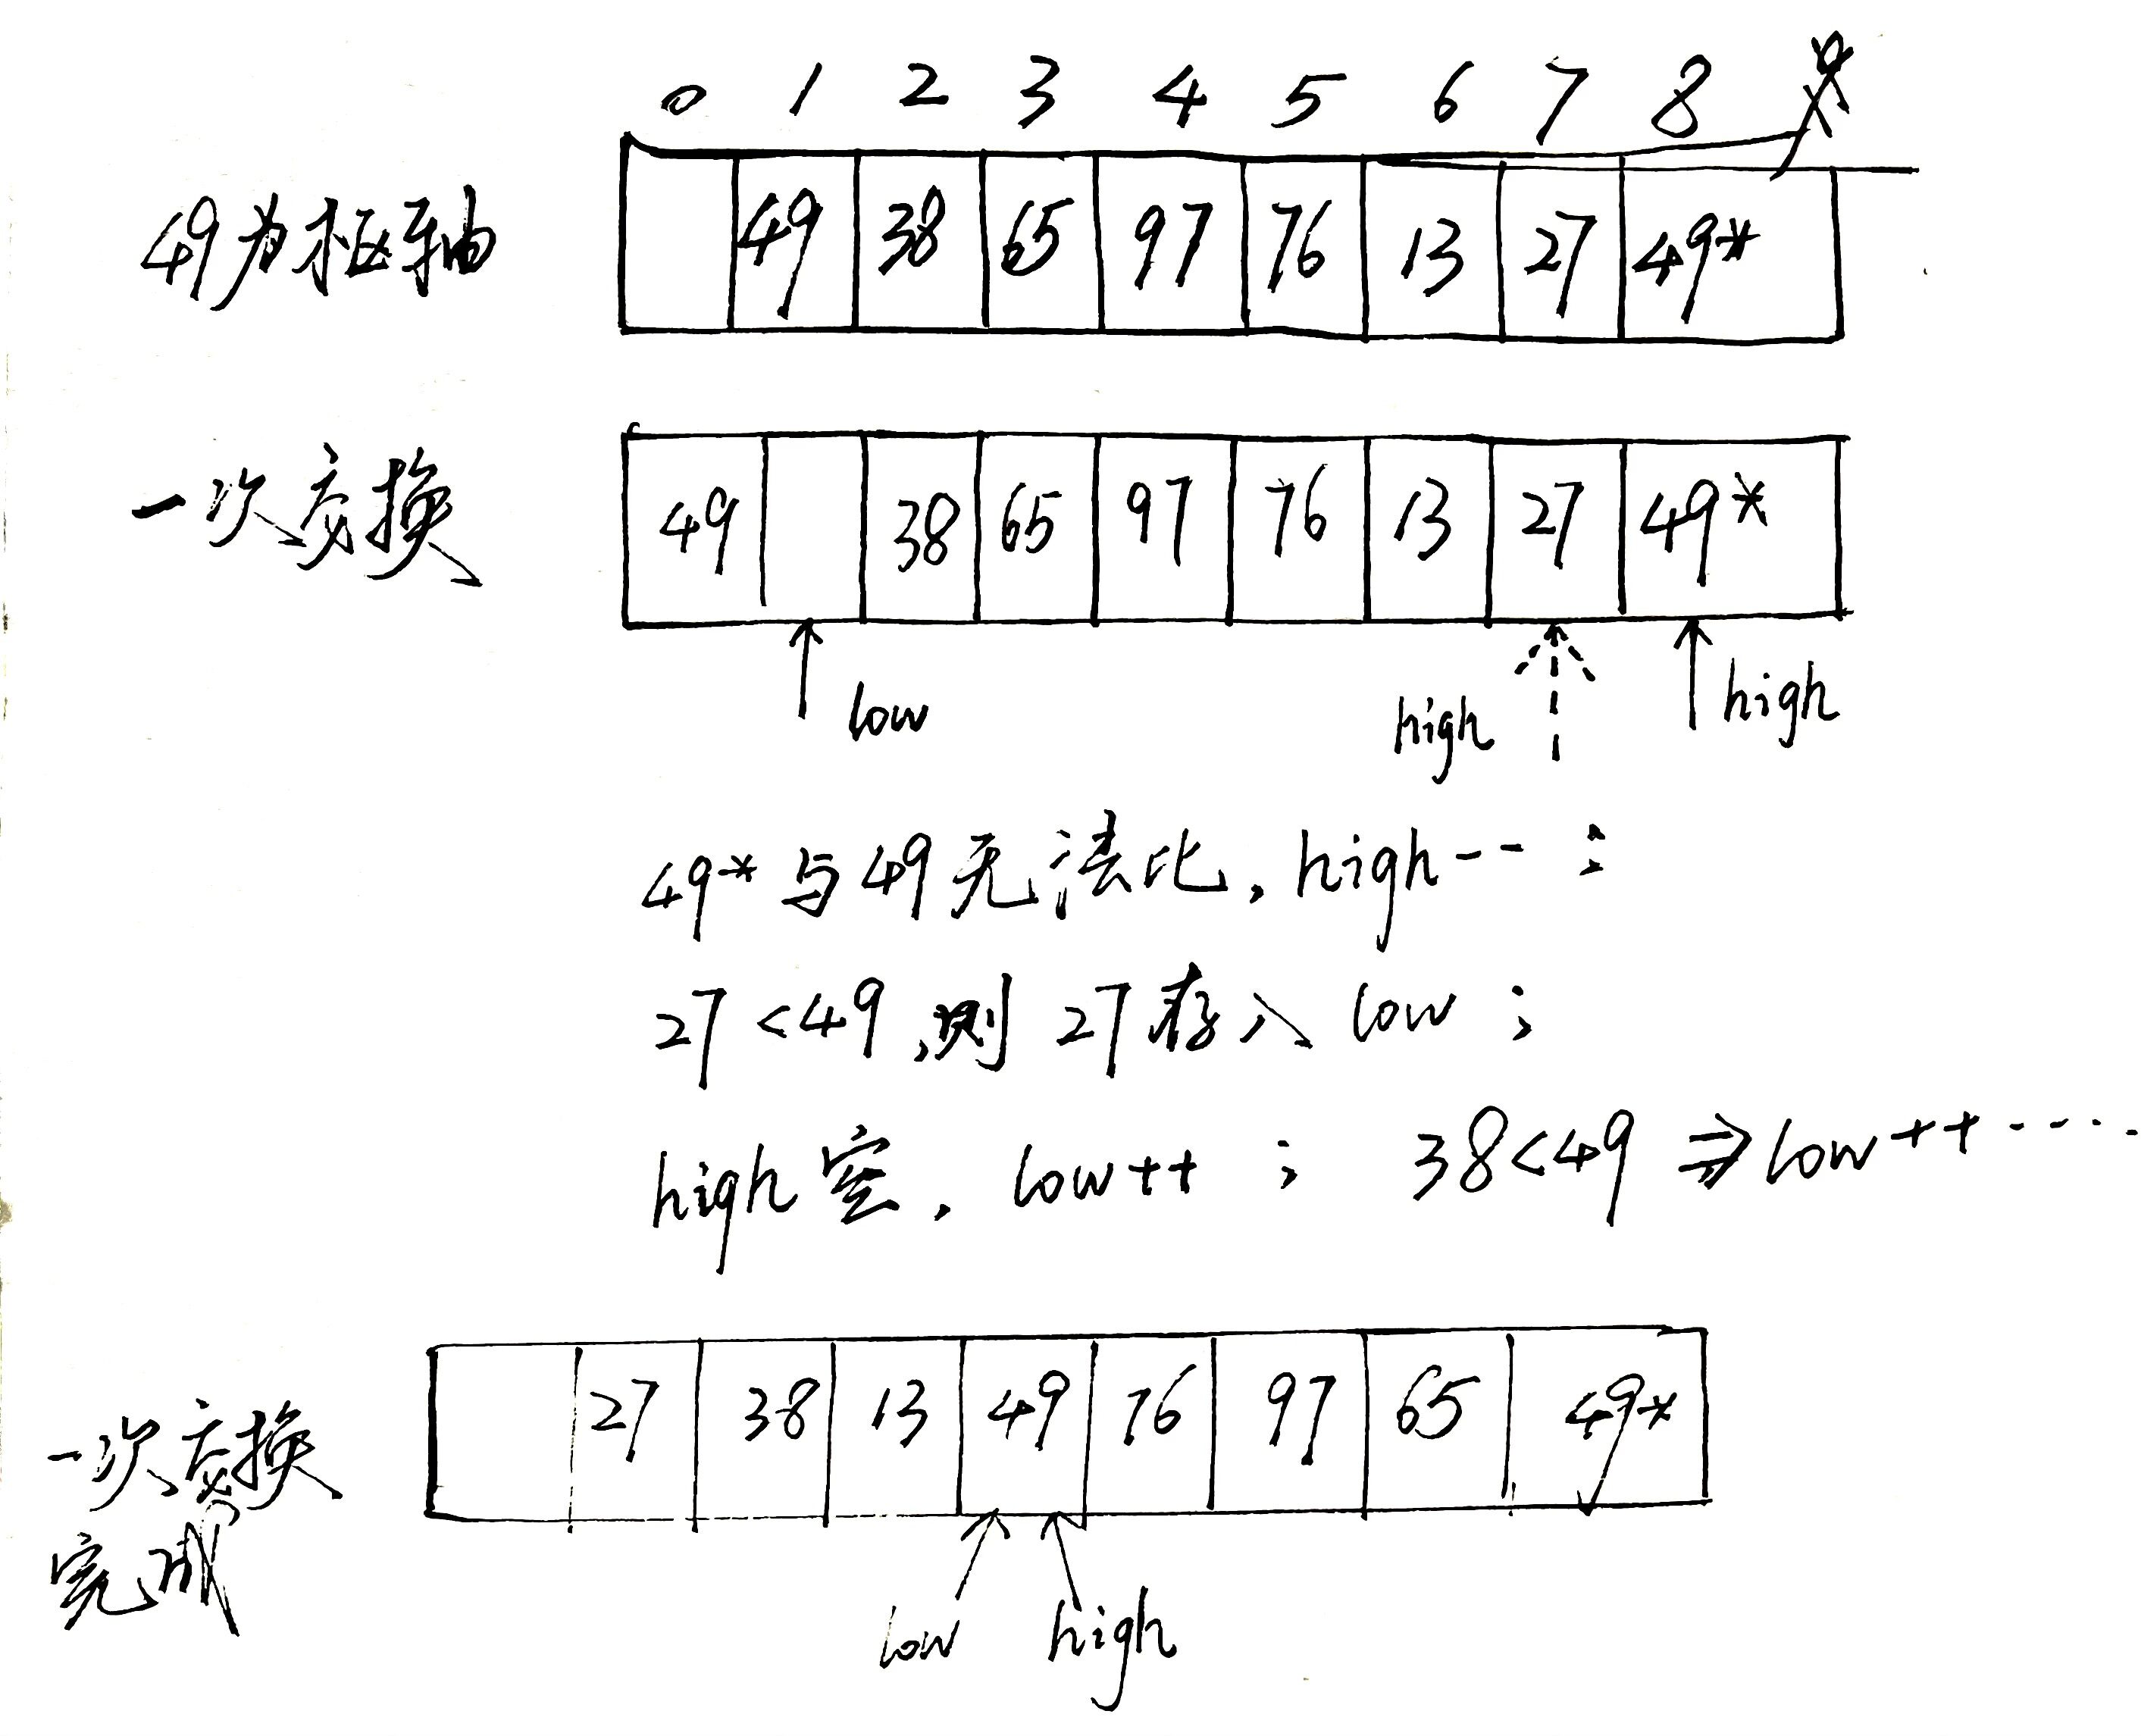 0 1 2 3 4 5 6 7 8
49为枢轴 49 38 65 97 76 13 27 49*
一次交换 49 38 65 97 76 13 27 49*
low high high
49*与49无法比,high--;
27<49,则27存入low;
high空,low++; 38<49⇒low++·····
一次交换 27 38 13 49 76 97 65 49*
完成
low high